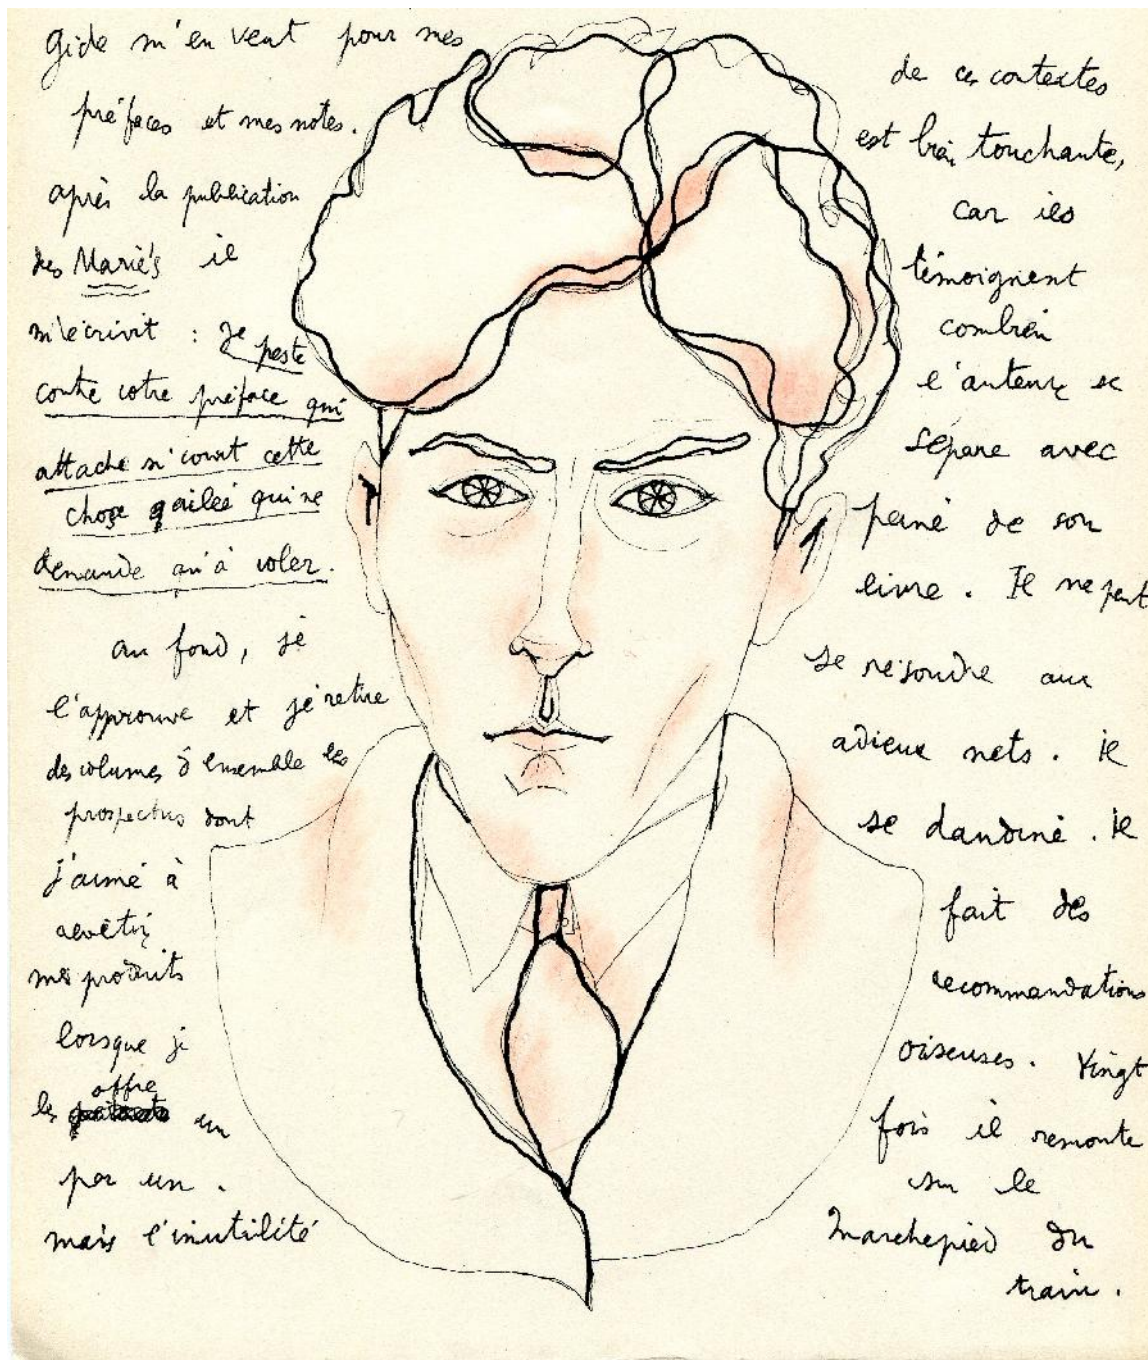 Gide m'en veut pour mes
préfaces et mes notes.
après la publication
des Mariés il
m'écrivit : Je peste
contre votre préface qui
attache si court cette
chose ailée qui ne
demande qu'à voler.
au fond, je
l'approuve et je retire
des volumes d'ensemble les
prospectus dont
j'aime à
revêtir
mes produits
lorsque je
offre
les un
par un.
mais l'inutilité
de ces contextes
est bien touchante,
car ils
témoignent
combien
l'auteur se
sépare avec
peine de son
livre. Il ne peut
se résoudre aux
adieux nets. il
se dandine. il
fait des
recommandations
oiseuses. Vingt
fois il remonte
sur le
marchepied du
train.